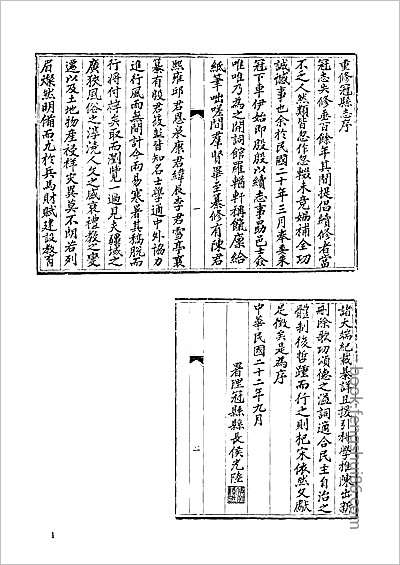 重修冠縣志序
冠志失修垂百餘年其間提倡續修者當
不乏人然類皆忽作忽輟未竟媧補全功
誠憾事也余於民國二十年三月奉委來
冠下車伊始即殷殷以續志事勗邑士僉
唯唯乃為之開詞館羅輶軒稱餼廩給
紙筆咄嗟間羣賢畢至纂修有陳君
一
熙雍邱君恩泉康君緯辰李君雪亭襄
纂有殷君筱彭皆知名士學通中外協力
進行風雨無間計今兩易寒暑其稿脫而
行將付梓矣取而瀏覽一過見夫疆域之
廣狹風俗之淳澆人文之盛衰禮教之變
遷以及土地物產祲祥災異莫不朗若列
眉燦然明備而尤於兵馬財賦建設教育
諸大端紀載綦詳且援引科學推陳出新
刪除歌功頌德之溢詞適合民主自治之
體制後哲踵而行之則杞宋依然文獻
足徵矣是為序
中華民國二十二年九月
二
署理冠縣縣長侯光陸
1